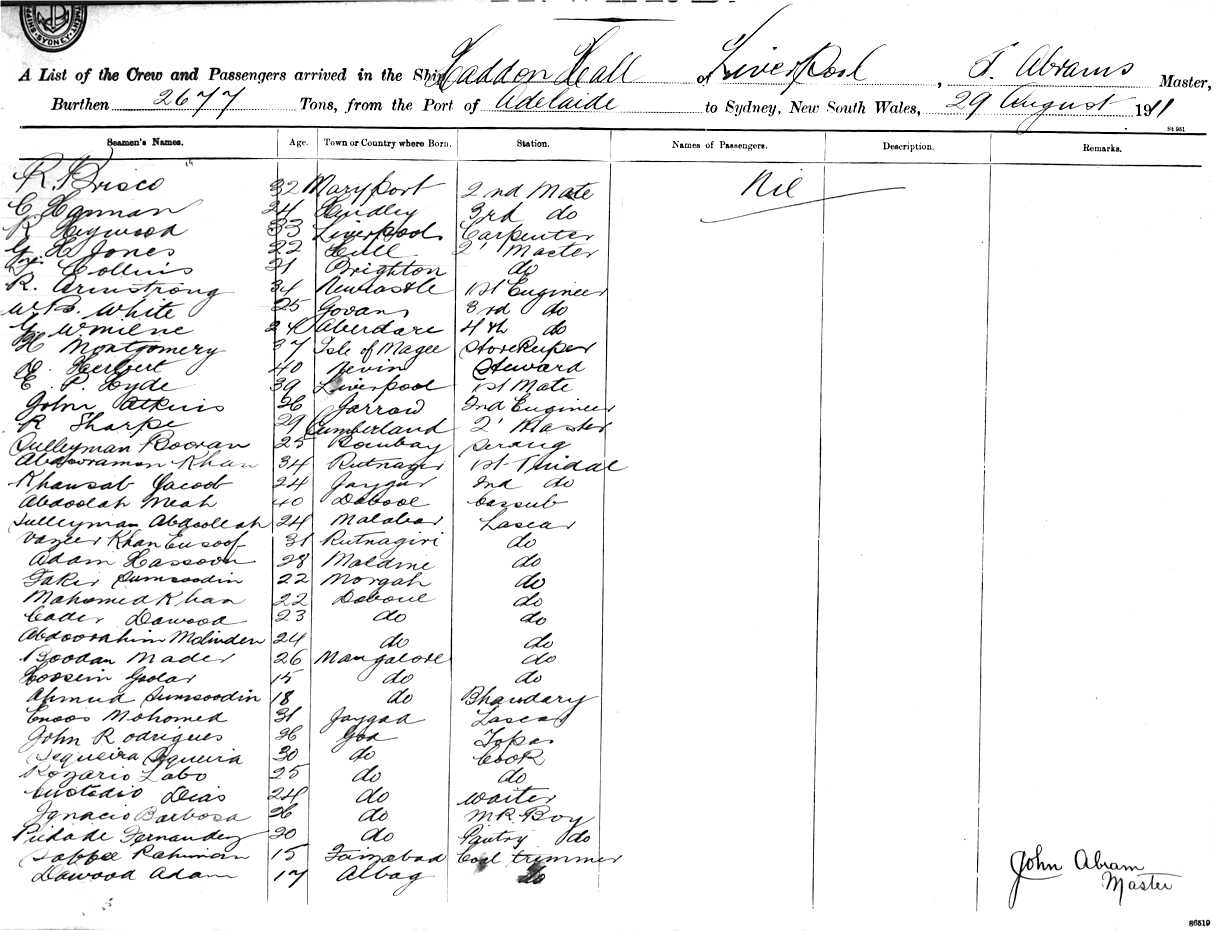 A List of the Crew and Passengers arrived in the Ship Haddon Hall of Liverpool, J. Abrams Master,
Burthen 2677 Tons, from the Port of Adelaide to Sydney, New South Wales, 29 August 1911
St 951
Seamen's Names. Age. Town or Country where Born. Station. Names of Passengers. Description. Remarks.
R. Brisco 32 Maryport 2nd Mate Nil
C Hannan 24 Hindley 3rd do
R Heywood 33 Liverpool Carpenter
G H Jones 22 Hull 2' Master
Collins 21 Brighton do
R. Armstrong 34 Newcastle 1st Engineer
W. B. White 25 Govan 3rd do
G W Milne 24 Aberdare 4th do
H Montgomery 37 Isle of Magee Storekeeper
H. Herbert 40 Nevin Steward
E. P. Hyde 39 Liverpool 1st Mate
John Atkins 26 Jarrow 2nd Engineer
R Sharpe 29 Cumberland 2' Master
Sulleyman Booran 25 Bombay Serang
Abdooraman Khan 34 Rutnagir 1st Tindal
Khansab Jacob 24 Jaygur 2nd do
Abdoolah Meah 40 Dabool Cassub
Sulleyman Abdoolah 24 Malabar Lascar
Vazeer Khan Eusoof 31 Rutnagiri do
Adam Hassoon 28 Maldive do
Fakir Sumsoodin 22 Morgah do
Mahomed Khan 22 Daboul do
Cader Dawood 23 do do
Abdoorahim Molinden 24 do do
Boodan Mader 26 Mangalore do
Hoosein Goolar 15 do do
Ahmud Sumsoodin 18 do Bhandary
Enoos Mohomed 31 Jaygad Lascar
John Rodrigues 36 Goa Topas
Sequeira Sequeira 30 do Cook
Rozario Labo 25 do do
Custodio Dias 24 do Waiter
Ignacio Barbosa 26 do M R Boy
Piedade Fernandez 20 do Pantry do
Rahiman 15 Faizabad Coal trimmer
Dawood Adam 17 Albag do
John Abram
Master
86519